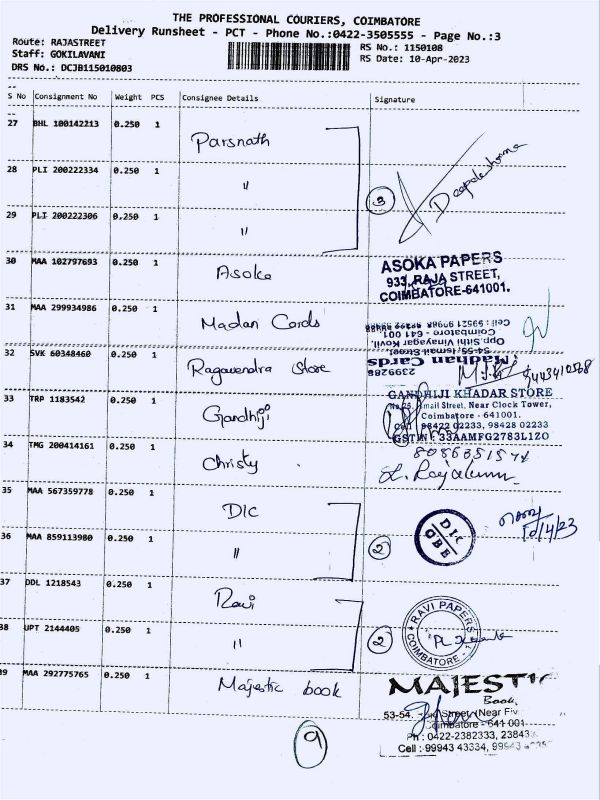 THE PROFESSIONAL COURIERS, COIMBATORE
Delivery Runsheet - PCT - Phone No.:0422-3505555 - Page No.:3
Route: RAJASTREET
RS No.: 1150108
Staff: GOKILAVANI
RS Date: 10-Apr-2023
DRS No.: DCJB115010803
S No Consignment No Weight PCS Consignee Details Signature
27 BHL 100142213 0.250 1 Parsnath
28 PLI 200222334 0.250 1 "
3
29 PLI 200222306 0.250 1 "
30 MAA 102797693 0.250 1 Asoka
ASOKA PAPERS
933, RAJA STREET,
COIMBATORE-641001.
31 MAA 299934986 0.250 1 Madan Cards
Madhan Cards
54-55, Ismail Street,
Opp. Sithi Vinayagar Kovil,
Coimbatore - 641 001.
2399288
32 SVK 60348460 0.250 1 Ragavendra Store
33 TRP 1183542 0.250 1 Gandhiji
GANDHIJI KHADAR STORE
Street, Near Clock Tower,
Coimbatore - 641001.
98422 02233, 98428 02233
GSTIN : 33AAMFG2783L1ZO
34 TMG 200414161 0.250 1 Christy
35 MAA 567359778 0.250 1 DIC
DIC
CBE
10/4/23
36 MAA 859113980 0.250 1 "
2
37 DDL 1218543 0.250 1 Ravi
RAVI PAPERS
COIMBATORE - 1
38 UPT 2144405 0.250 1 "
2
39 MAA 292775765 0.250 1 Majestic book
MAJESTIC
Book
53-54, Street, (Near Fiv
Coimbatore - 641 001
Ph : 0422-2382333, 23843
Cell : 99943 43334, 99943
9